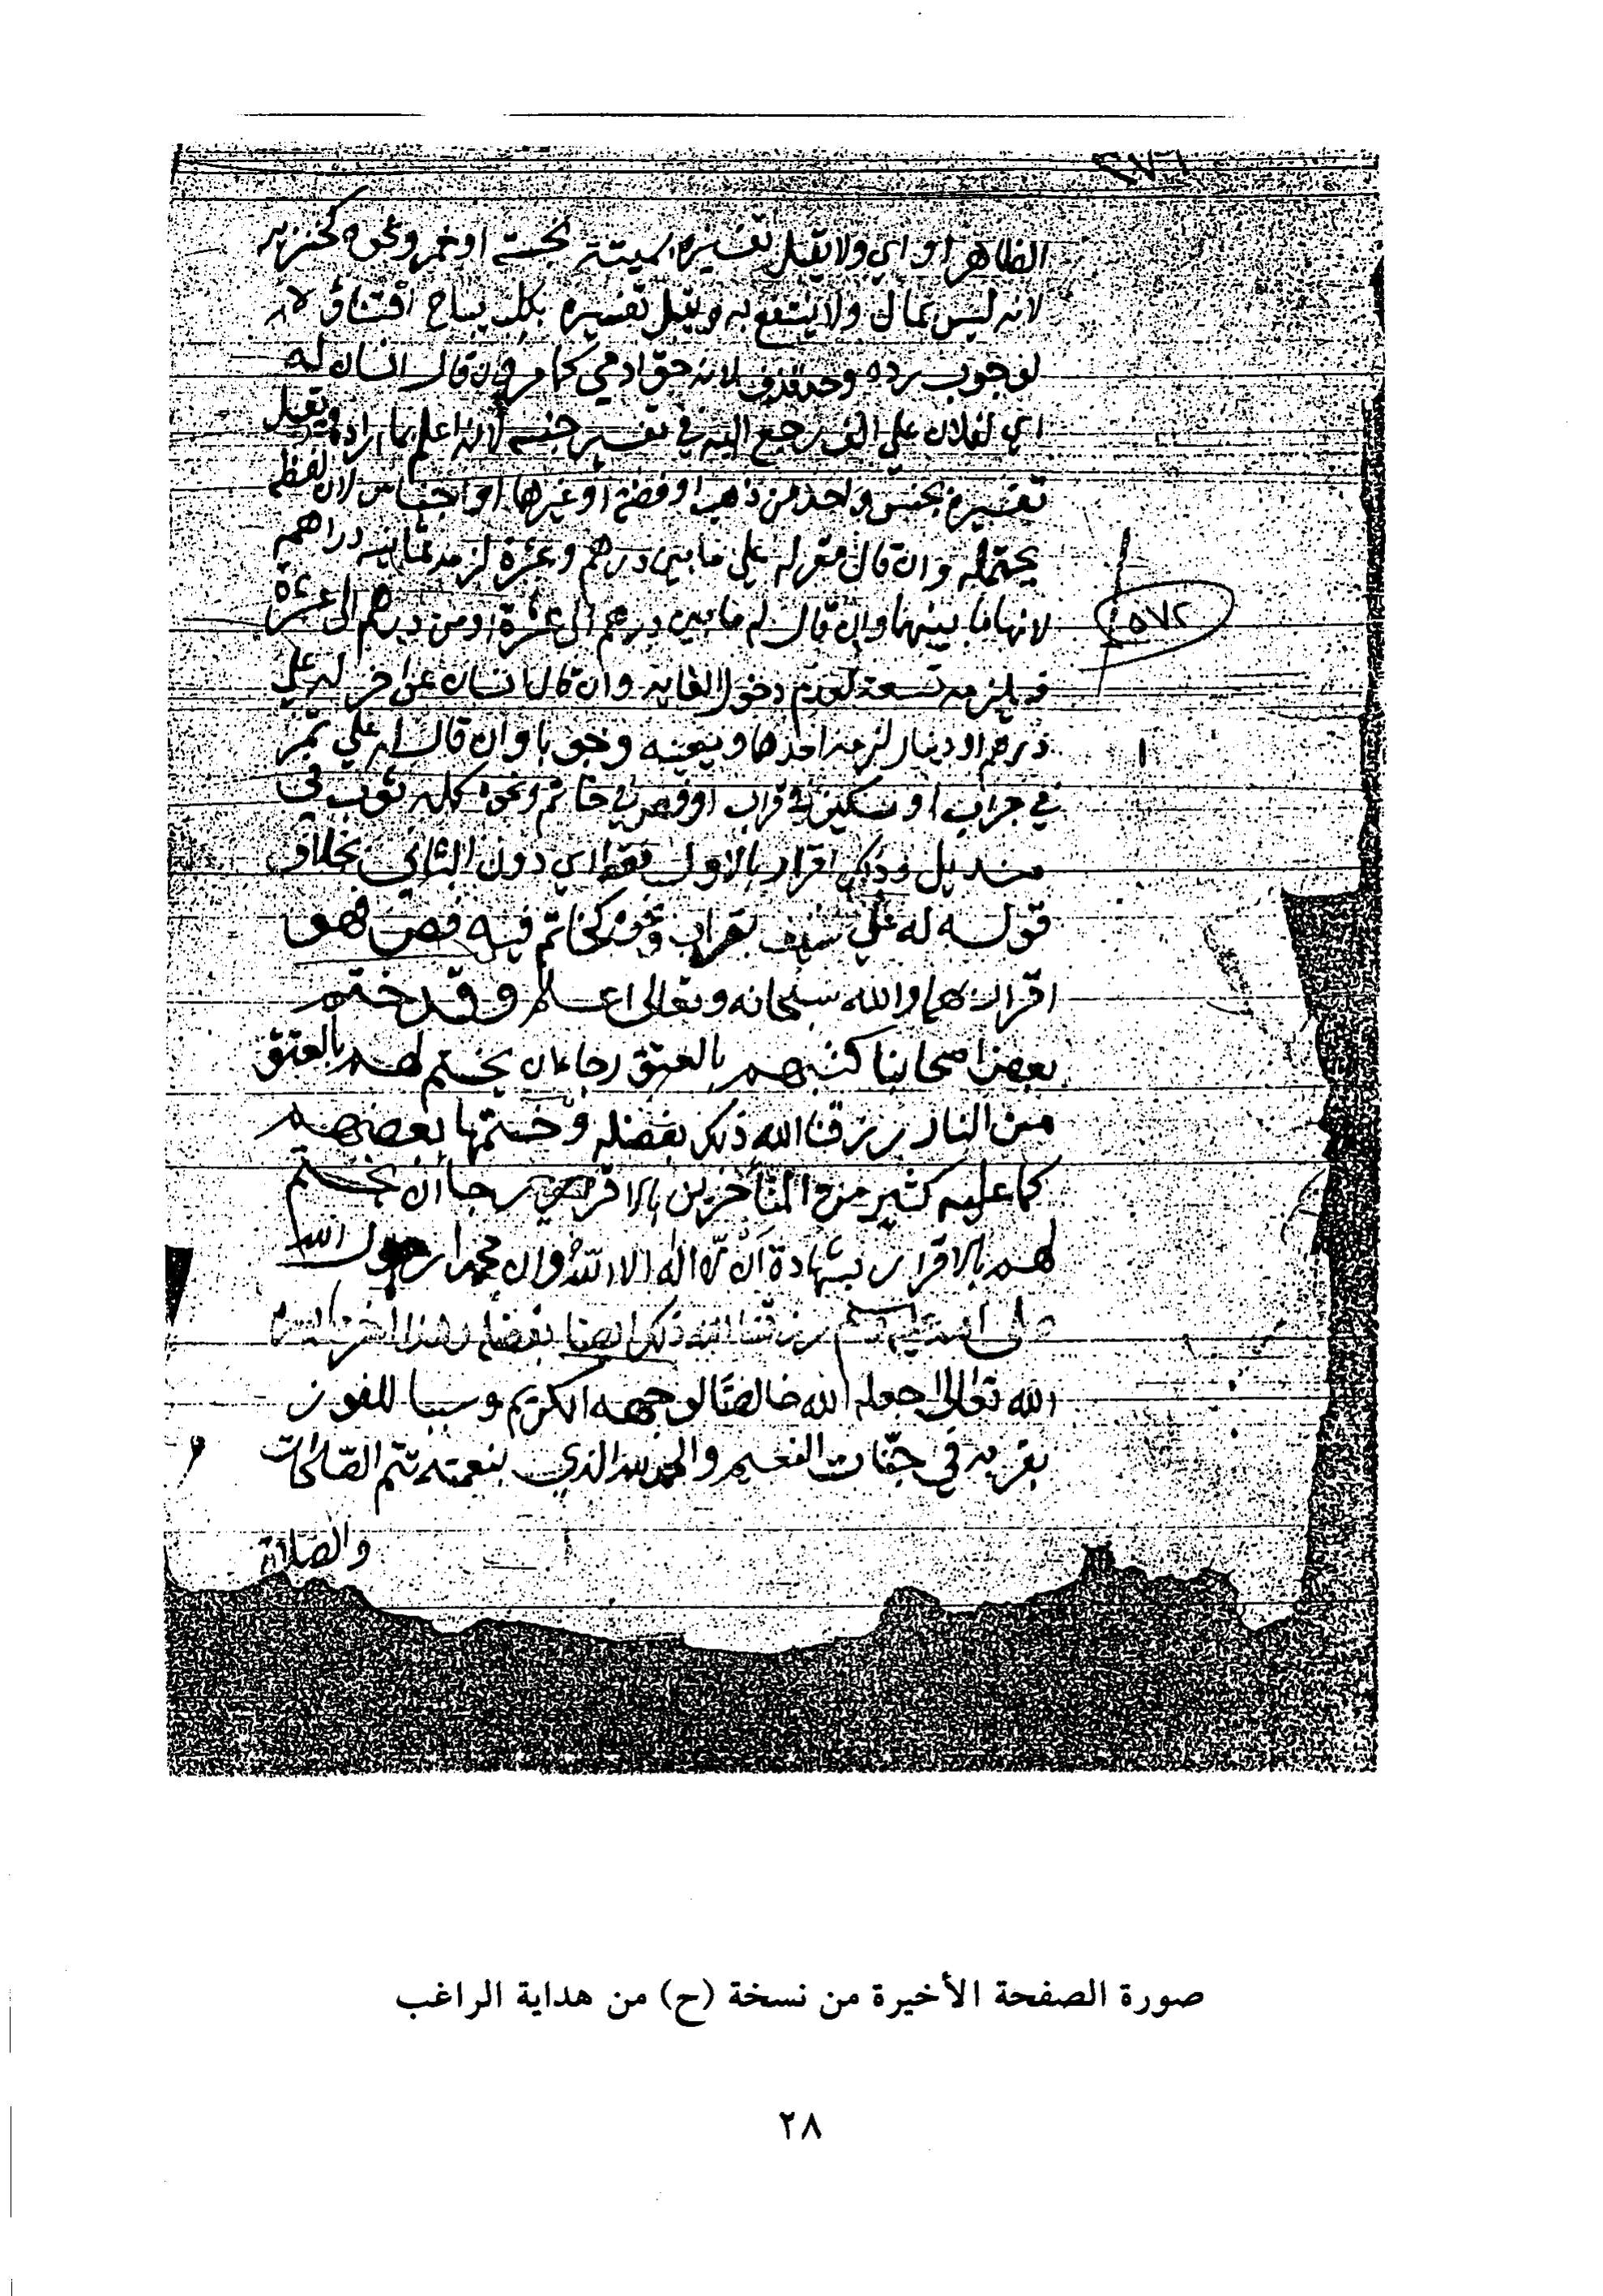 الظاهر اواي ولا يقبل تفسيره بميتة نجسة اوخمر ونحوه كخنزير
لانه ليس بمال ولا ينتفع به ويقبل تفسيره بكلب يباح اقتناؤه
لوجوب رده وحد قذف لانه حق ادمي كما مر وان قال انسان له
اي لفلان علي الف رجع اليه في تفسير جنسه لانه اعلم بما اراده ويقبل
تفسيره بجنس واحد من ذهب او فضة او غيرها او اجناس لان لفظه
يحتمله وان قال مقر له علي ما بين درهم وعشرة لزمه ثمانية دراهم
لانها ما بينهما وان قال له ما بين درهم الى عشرة او من درهم الى عشرة
فيلزمه تسعة لعدم دخول الغاية وان قال انسان عن اخر له علي
درهم او دينار لزمه احدهما ويعينه وجوبا وان قال له علي تمر
في جراب او سكين في قراب او فص في خاتم ونحوه كله ثوب في
منديل فذلك اقرار بالاول فقط اي دون الثاني بخلاف
قوله له علي سيف بقراب ونحوه كخاتم فيه فص فهو
اقرار بهما والله سبحانه وتعالى اعلم وقد ختم
بعض اصحابنا كتبهم بالعتق رجاء ان يختم لهم بالعتق
من النار رزقنا الله ذلك بفضله وختمها بعضهم
كما عليه كثير من المتأخرين بالاقرار رجا ان يختم
لهم بالاقرار بشهادة أن لا اله الا الله وان محمدا رسول الله
صلى الله عليه وسلم رزقنا الله ذلك ايضا بفضله وهذا اخر ما يسره
الله تعالى جعله الله خالصا لوجهه الكريم وسببا للفوز
بقربه في جنات النعيم والحمد لله الذي بنعمته تتم الصالحات
والصلاة
٥٧٢
صورة الصفحة الأخيرة من نسخة (ح) من هداية الراغب
٢٨